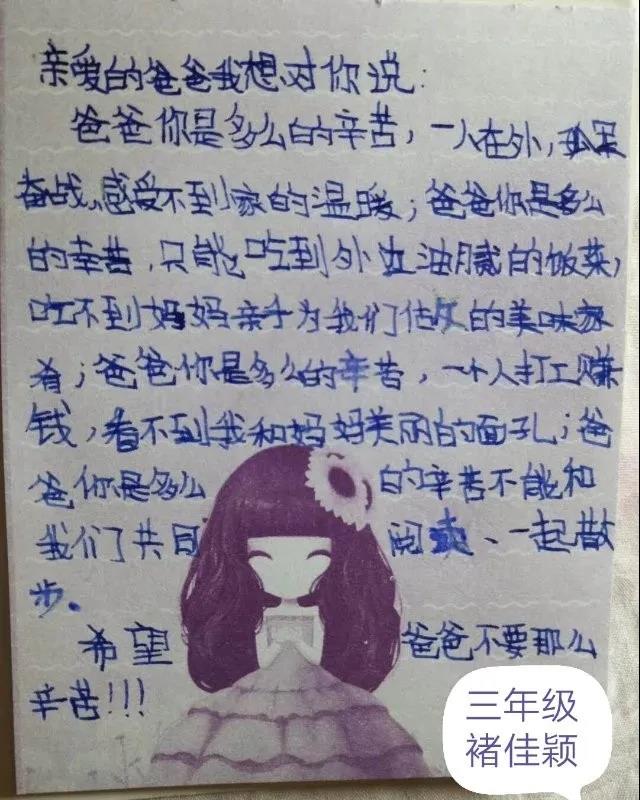 亲爱的爸爸我想对你说:
爸爸你是多么的辛苦,一人在外,孤军
奋战,感受不到家的温暖;爸爸你是多么
的辛苦,只能吃到外边油腻的饭菜,
吃不到妈妈亲手为我们做的美味家
肴;爸爸你是多么的辛苦,一个人打工赚
钱,看不到我和妈妈美丽的面孔;爸
爸你是多么的辛苦不能和
我们共同阅读、一起散
步。
希望爸爸不要那么
辛苦!!!
三年级
褚佳颖